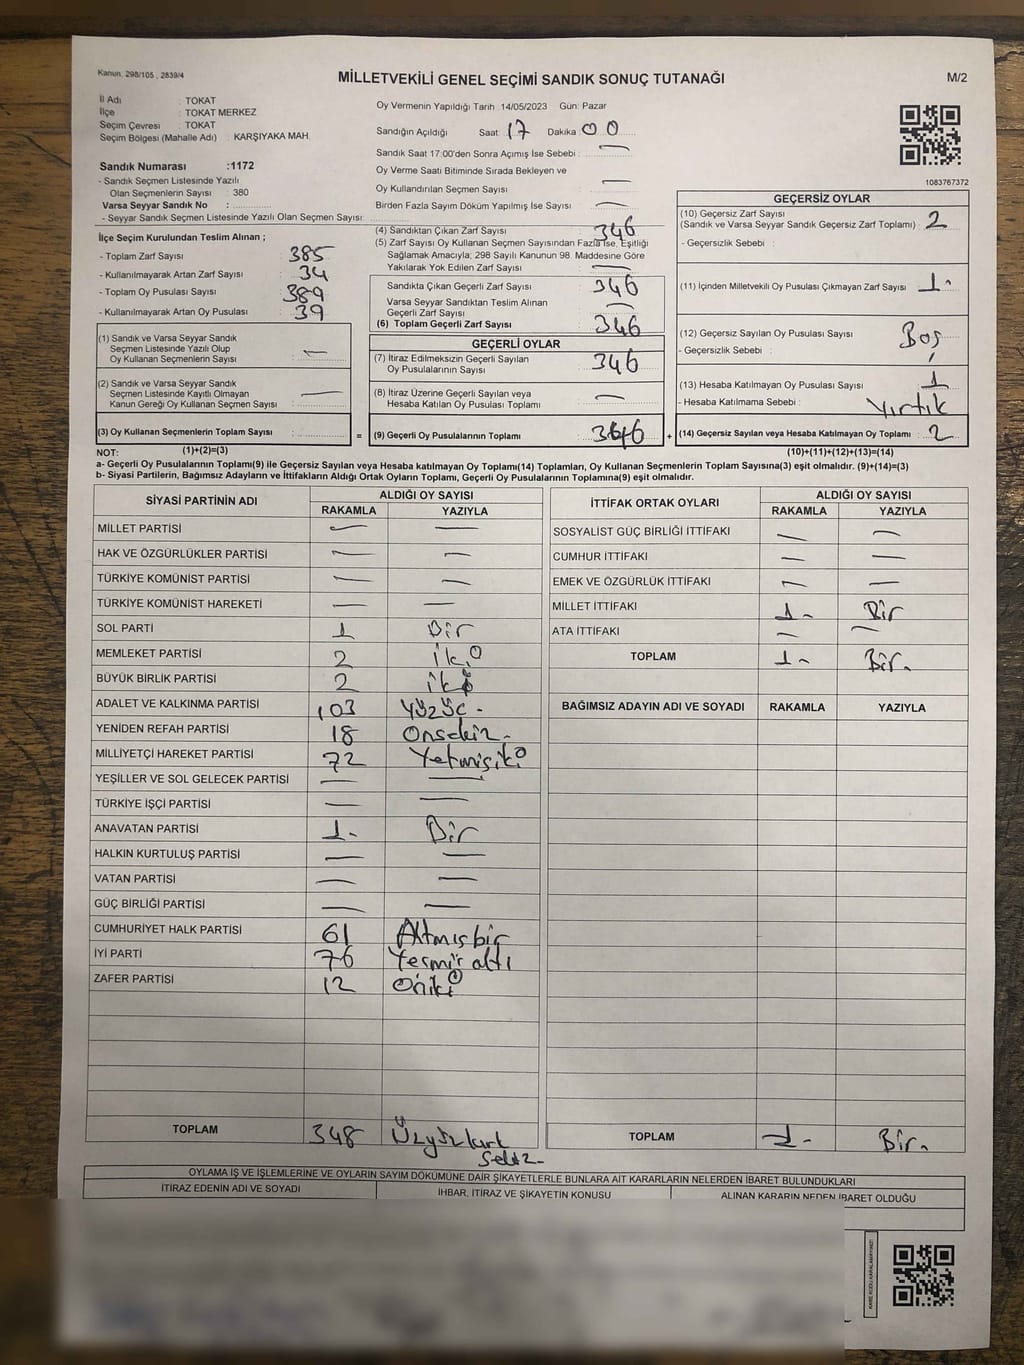 Kanun, 298/105 , 2839/4
MİLLETVEKİLİ GENEL SEÇİMİ SANDIK SONUÇ TUTANAĞI
M/2
İl Adı : TOKAT
İlçe : TOKAT MERKEZ
Seçim Çevresi : TOKAT
Seçim Bölgesi (Mahalle Adı) : KARŞIYAKA MAH.
Sandık Numarası :1172
- Sandık Seçmen Listesinde Yazılı
Olan Seçmenlerin Sayısı : 380
Varsa Seyyar Sandık No :
- Seyyar Sandık Seçmen Listesinde Yazılı Olan Seçmen Sayısı:
Oy Vermenin Yapıldığı Tarih :14/05/2023 Gün: Pazar
Sandığın Açıldığı Saat : 17 Dakika : 00
Sandık Saat 17:00'den Sonra Açımış İse Sebebi : —
Oy Verme Saati Bitiminde Sırada Bekleyen ve
Oy Kullandırılan Seçmen Sayısı : —
Birden Fazla Sayım Döküm Yapılmış İse Sayısı : —
1083767372
İlçe Seçim Kurulundan Teslim Alınan ;
- Toplam Zarf Sayısı : 385
- Kullanılmayarak Artan Zarf Sayısı : 34
- Toplam Oy Pusulası Sayısı : 389
- Kullanılmayarak Artan Oy Pusulası : 39
(1) Sandık ve Varsa Seyyar Sandık
Seçmen Listesinde Yazılı Olup
Oy Kullanan Seçmenlerin Sayısı : —
(2) Sandık ve Varsa Seyyar Sandık
Seçmen Listesinde Kayıtlı Olmayan
Kanun Gereği Oy Kullanan Seçmen Sayısı : —
(3) Oy Kullanan Seçmenlerin Toplam Sayısı :
(4) Sandıktan Çıkan Zarf Sayısı : 346
(5) Zarf Sayısı Oy Kullanan Seçmen Sayısından Fazla İse, Eşitliği
Sağlamak Amacıyla; 298 Sayılı Kanunun 98. Maddesine Göre
Yakılarak Yok Edilen Zarf Sayısı : —
Sandıkta Çıkan Geçerli Zarf Sayısı : 346
Varsa Seyyar Sandıktan Teslim Alınan
Geçerli Zarf Sayısı : —
(6) Toplam Geçerli Zarf Sayısı : 346
GEÇERLİ OYLAR
(7) İtiraz Edilmeksizin Geçerli Sayılan
Oy Pusulalarının Sayısı : 346
(8) İtiraz Üzerine Geçerli Sayılan veya
Hesaba Katılan Oy Pusulası Toplamı : —
= (9) Geçerli Oy Pusulalarının Toplamı :
GEÇERSİZ OYLAR
(10) Geçersiz Zarf Sayısı
(Sandık ve Varsa Seyyar Sandık Geçersiz Zarf Toplamı) : 2
- Geçersizlik Sebebi :
(11) İçinden Milletvekili Oy Pusulası Çıkmayan Zarf Sayısı : 1-
(12) Geçersiz Sayılan Oy Pusulası Sayısı : Boş
- Geçersizlik Sebebi :
(13) Hesaba Katılmayan Oy Pusulası Sayısı : 1
- Hesaba Katılmama Sebebi : Yırtık
+ (14) Geçersiz Sayılan veya Hesaba Katılmayan Oy Toplamı : 2
NOT: (1)+(2)=(3) (10)+(11)+(12)+(13)=(14)
a- Geçerli Oy Pusulalarının Toplamı(9) ile Geçersiz Sayılan veya Hesaba katılmayan Oy Toplamı(14) Toplamları, Oy Kullanan Seçmenlerin Toplam Sayısına(3) eşit olmalıdır. (9)+(14)=(3)
b- Siyasi Partilerin, Bağımsız Adayların ve İttifakların Aldığı Ortak Oyların Toplamı, Geçerli Oy Pusulalarının Toplamına(9) eşit olmalıdır.
SİYASİ PARTİNİN ADI ALDIĞI OY SAYISI
RAKAMLA YAZIYLA
MİLLET PARTİSİ — —
HAK VE ÖZGÜRLÜKLER PARTİSİ — —
TÜRKİYE KOMÜNİST PARTİSİ — —
TÜRKİYE KOMÜNİST HAREKETİ — —
SOL PARTİ 1 Bir
MEMLEKET PARTİSİ 2 iki
BÜYÜK BİRLİK PARTİSİ 2 iki
ADALET VE KALKINMA PARTİSİ 103 Yüzüç -
YENİDEN REFAH PARTİSİ 18 Onsekiz -
MİLLİYETÇİ HAREKET PARTİSİ 72 Yetmişiki
YEŞİLLER VE SOL GELECEK PARTİSİ — —
TÜRKİYE İŞÇİ PARTİSİ — —
ANAVATAN PARTİSİ 1- Bir
HALKIN KURTULUŞ PARTİSİ — —
VATAN PARTİSİ — —
GÜÇ BİRLİĞİ PARTİSİ — —
CUMHURİYET HALK PARTİSİ 61 Altmışbir
İYİ PARTİ 76 altı
ZAFER PARTİSİ 12 Oniki
TOPLAM 348 Üzyüzkırk
Sekiz-
İTTİFAK ORTAK OYLARI ALDIĞI OY SAYISI
RAKAMLA YAZIYLA
SOSYALİST GÜÇ BİRLİĞİ İTTİFAKI — —
CUMHUR İTTİFAKI — —
EMEK VE ÖZGÜRLÜK İTTİFAKI — —
MİLLET İTTİFAKI 1- Bir
ATA İTTİFAKI — —
TOPLAM 1- Bir-
BAĞIMSIZ ADAYIN ADI VE SOYADI RAKAMLA YAZIYLA
TOPLAM 1- Bir-
OYLAMA İŞ VE İŞLEMLERİNE VE OYLARIN SAYIM DÖKÜMÜNE DAİR ŞİKAYETLERLE BUNLARA AİT KARARLARIN NELERDEN İBARET BULUNDUKLARI
İTİRAZ EDENİN ADI VE SOYADI İHBAR, İTİRAZ VE ŞİKAYETİN KONUSU ALINAN KARARIN NEDEN İBARET OLDUĞU